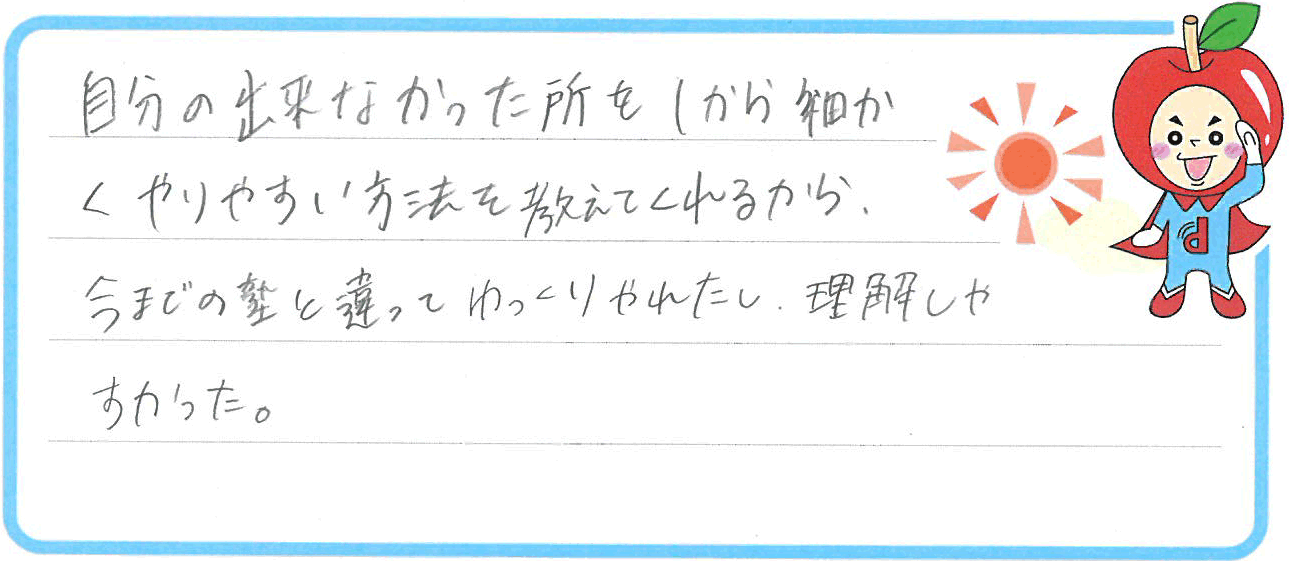 自分の出来なかった所を1から細か
くやりやすい方法を教えてくれるから、
今までの塾と違ってゆっくりやれたし、理解しや
すかった。